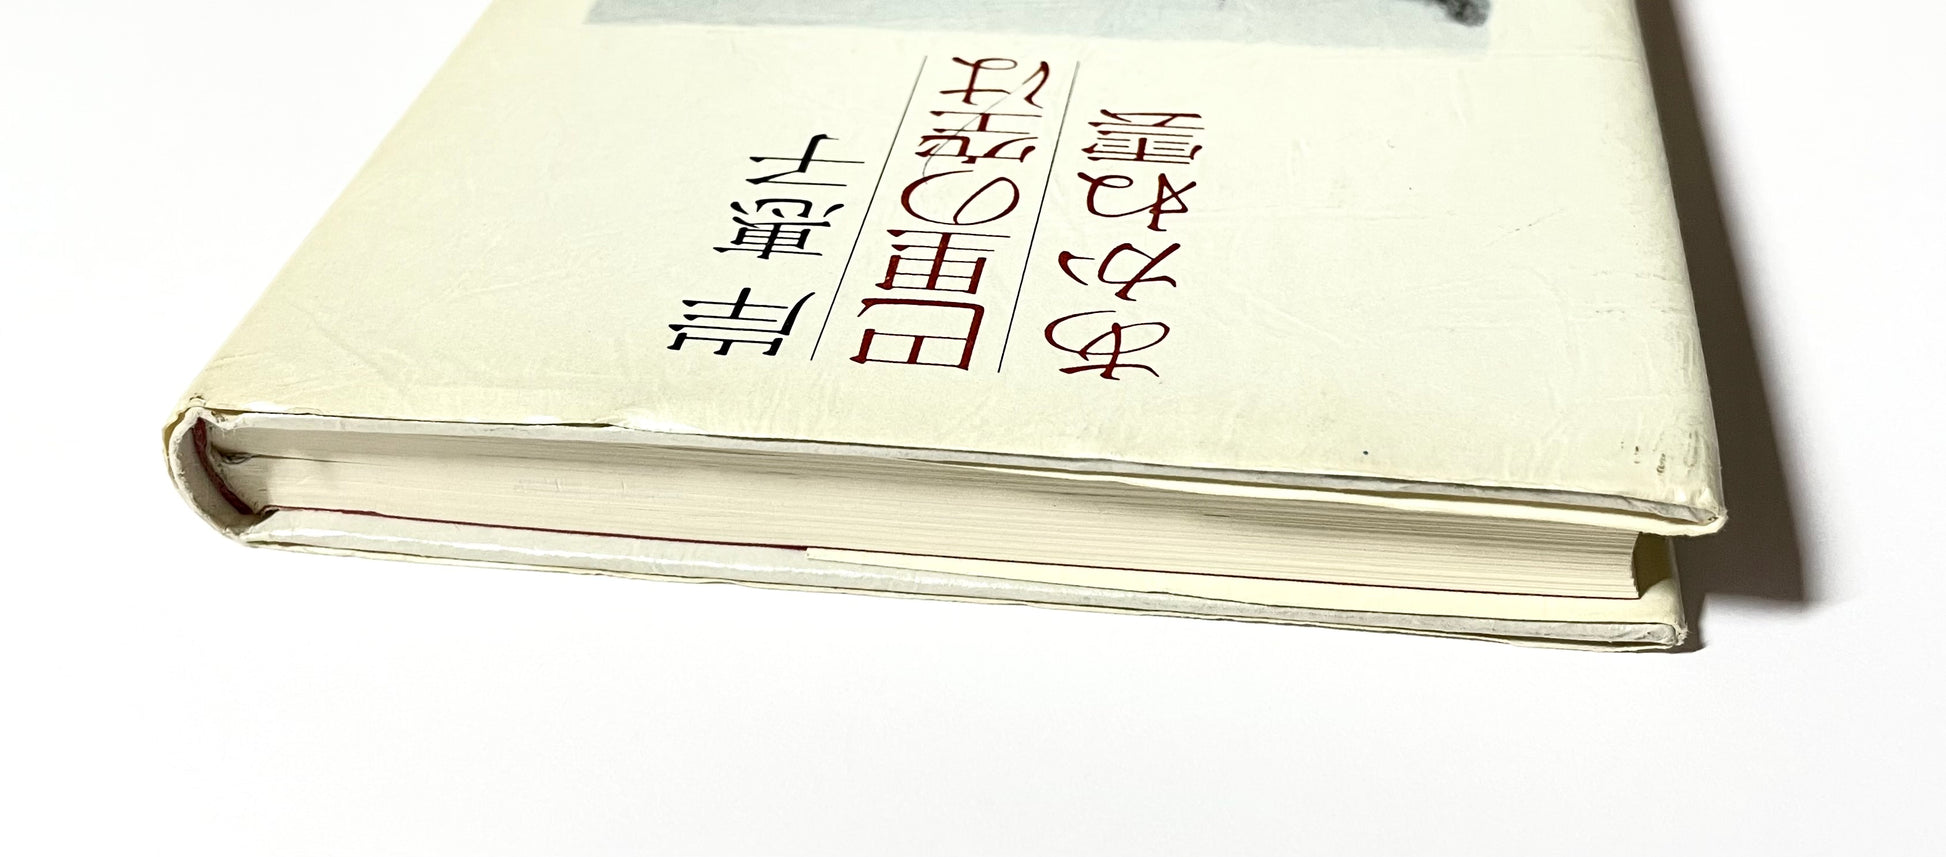 岸恵子
巴里の空は
あかね雲